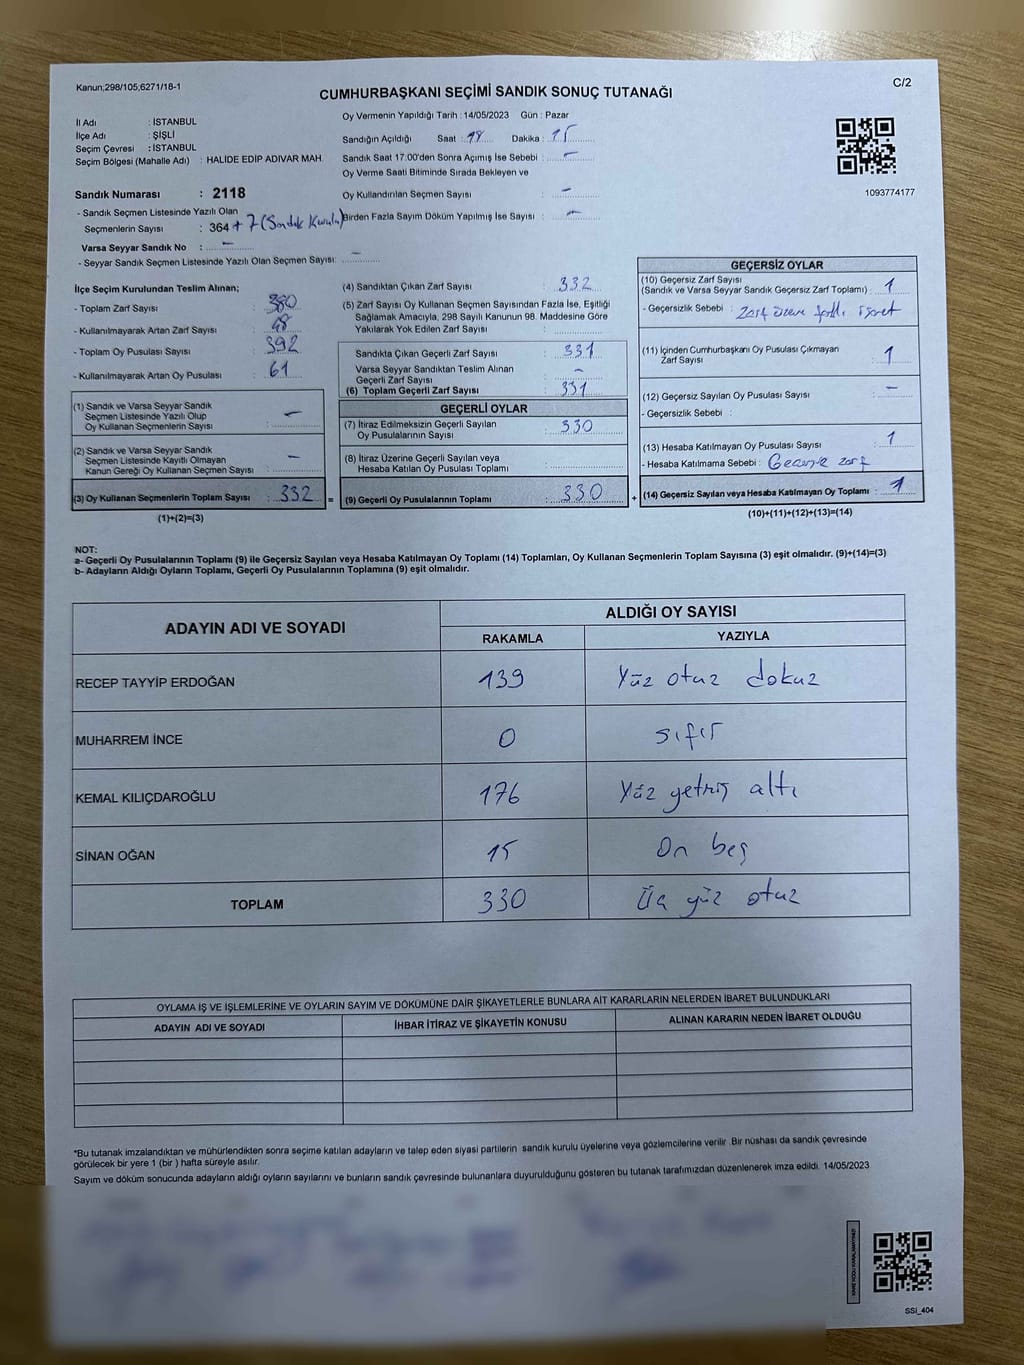 Kanun;298/105;6271/18-1
C/2
CUMHURBAŞKANI SEÇİMİ SANDIK SONUÇ TUTANAĞI
İl Adı : İSTANBUL
İlçe Adı : ŞİŞLİ
Seçim Çevresi : İSTANBUL
Seçim Bölgesi (Mahalle Adı) : HALİDE EDİP ADIVAR MAH.
Sandık Numarası : 2118
- Sandık Seçmen Listesinde Yazılı Olan
Seçmenlerin Sayısı : 364 + 7 (Sandık Kurulu)
Varsa Seyyar Sandık No : -
- Seyyar Sandık Seçmen Listesinde Yazılı Olan Seçmen Sayısı: -
Oy Vermenin Yapıldığı Tarih : 14/05/2023 Gün : Pazar
Sandığın Açıldığı Saat : Dakika : 15
Sandık Saat 17:00'den Sonra Açımış İse Sebebi : -
Oy Verme Saati Bitiminde Sırada Bekleyen ve
Oy Kullandırılan Seçmen Sayısı : -
Birden Fazla Sayım Döküm Yapılmış İse Sayısı : -
1093774177
İlçe Seçim Kurulundan Teslim Alınan;
- Toplam Zarf Sayısı : 380
- Kullanılmayarak Artan Zarf Sayısı : 48
- Toplam Oy Pusulası Sayısı : 392
- Kullanılmayarak Artan Oy Pusulası : 61
(1) Sandık ve Varsa Seyyar Sandık
Seçmen Listesinde Yazılı Olup
Oy Kullanan Seçmenlerin Sayısı : -
(2) Sandık ve Varsa Seyyar Sandık
Seçmen Listesinde Kayıtlı Olmayan
Kanun Gereği Oy Kullanan Seçmen Sayısı : -
(3) Oy Kullanan Seçmenlerin Toplam Sayısı : 332 =
(1)+(2)=(3)
(4) Sandıktan Çıkan Zarf Sayısı : 332
(5) Zarf Sayısı Oy Kullanan Seçmen Sayısından Fazla İse, Eşitliği
Sağlamak Amacıyla, 298 Sayılı Kanunun 98. Maddesine Göre
Yakılarak Yok Edilen Zarf Sayısı :
Sandıkta Çıkan Geçerli Zarf Sayısı : 331
Varsa Seyyar Sandıktan Teslim Alınan
Geçerli Zarf Sayısı : -
(6) Toplam Geçerli Zarf Sayısı : 331
GEÇERLİ OYLAR
(7) İtiraz Edilmeksizin Geçerli Sayılan
Oy Pusulalarının Sayısı : 330
(8) İtiraz Üzerine Geçerli Sayılan veya
Hesaba Katılan Oy Pusulası Toplamı :
(9) Geçerli Oy Pusulalarının Toplamı : 330 +
GEÇERSİZ OYLAR
(10) Geçersiz Zarf Sayısı
(Sandık ve Varsa Seyyar Sandık Geçersiz Zarf Toplamı) : 1
- Geçersizlik Sebebi : Zarf üzere farklı işaret
(11) İçinden Cumhurbaşkanı Oy Pusulası Çıkmayan
Zarf Sayısı : 1
(12) Geçersiz Sayılan Oy Pusulası Sayısı : -
- Geçersizlik Sebebi :
(13) Hesaba Katılmayan Oy Pusulası Sayısı : 1
- Hesaba Katılmama Sebebi : zarf
(14) Geçersiz Sayılan veya Hesaba Katılmayan Oy Toplamı : 1
(10)+(11)+(12)+(13)=(14)
NOT:
a- Geçerli Oy Pusulalarının Toplamı (9) ile Geçersiz Sayılan veya Hesaba Katılmayan Oy Toplamı (14) Toplamları, Oy Kullanan Seçmenlerin Toplam Sayısına (3) eşit olmalıdır. (9)+(14)=(3)
b- Adayların Aldığı Oyların Toplamı, Geçerli Oy Pusulalarının Toplamına (9) eşit olmalıdır.
ADAYIN ADI VE SOYADI ALDIĞI OY SAYISI
RAKAMLA YAZIYLA
RECEP TAYYİP ERDOĞAN 139 Yüz otuz dokuz
MUHARREM İNCE 0 sıfır
KEMAL KILIÇDAROĞLU 176 Yüz yetmiş altı
SİNAN OĞAN 15 On beş
TOPLAM 330 Üç yüz otuz
OYLAMA İŞ VE İŞLEMLERİNE VE OYLARIN SAYIM VE DÖKÜMÜNE DAİR ŞİKAYETLERLE BUNLARA AİT KARARLARIN NELERDEN İBARET BULUNDUKLARI
ADAYIN ADI VE SOYADI İHBAR İTİRAZ VE ŞİKAYETİN KONUSU ALINAN KARARIN NEDEN İBARET OLDUĞU
*Bu tutanak imzalandıktan ve mühürlendikten sonra seçime katılan adayların ve talep eden siyasi partilerin sandık kurulu üyelerine veya gözlemcilerine verilir .Bir nüshası da sandık çevresinde
görülecek bir yere 1 (bir ) hafta süreyle asılır.
Sayım ve döküm sonucunda adayların aldığı oyların sayılarını ve bunların sandık çevresinde bulunanlara duyurulduğunu gösteren bu tutanak tarafımızdan düzenlenerek imza edildi. 14/05/2023
SSİ_404